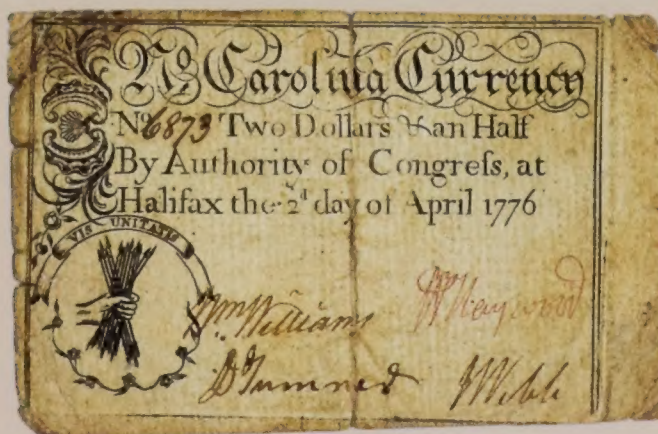 No. Carolina Currency
No. 6873 Two Dollars & an Half
By Authority of Congreſs, at
Halifax the 2d day of April 1776
VIS UNITATIS
Wm Williams
W Haywood
J Webb